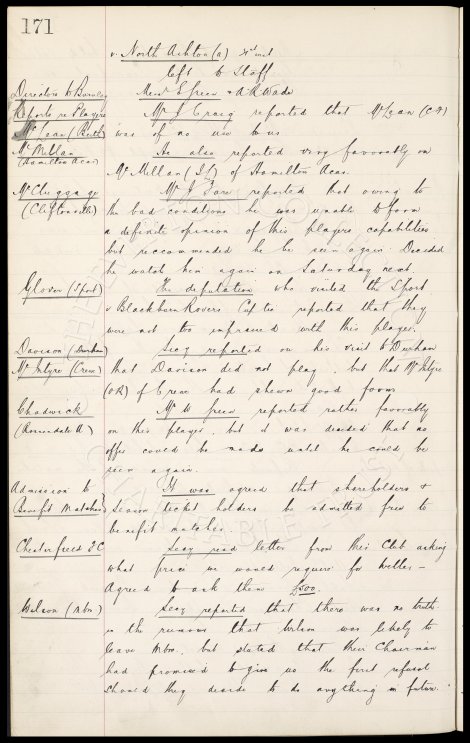 171
v. North Ashton (a) 4th inst
left to Staff.
Directors to Burnley Messrs E Green & A.R. Wade
Reports re Players Mr J. Craig reported that McLean (C.F)
McLean (Perth) was of no use to us
McMillan He also reported very favorably on
(Hamilton Acas) McMillan (I.L) of Hamilton Acas.
McCluggage Mr J. reported that owing to
(Cliftonville) the bad conditions he was unable to form
a definite opinion of this players capabilities
but reccommended he be seen again. Decided
he watch him again on Saturday next.
Glover (Sport) The deputation who visited the S'port
v Blackburn Rovers Cup tie reported that they
were not too impressed with this player.
Davison (Durham) Secy reported on his visit to Durham
McIntyre (Crew) that Davison did not play, but that McIntyre
(OR) of Crewe had shown good form
Chadwick Mr W Green reported rather favorably
(Rossendale U) on this player, but it was decided that no
offer could be made until he could be
seen again.
Admission to It was agreed that shareholders &
Benefit Matches season ticket holders be admitted free to
benefit matches.
Chesterfield FC Secy read letter from this Club asking
what price we would require for -
Agreed to ask them £500.
Wilson (Mbro) Secy reported that there was no truth
in the rumours that Wilson was likely to
leave Mbro, but stated that their Chairman
had promised to give us the first refusal
should they decide to do anything in future.